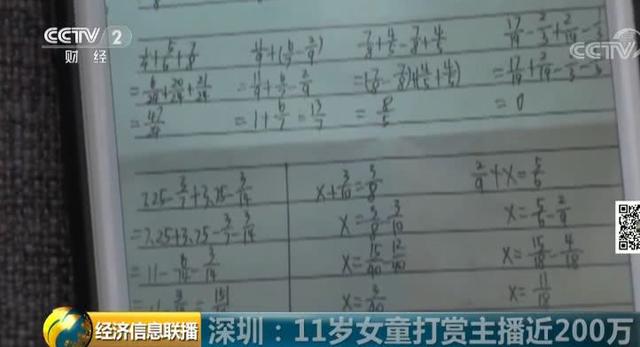 CCTV 2
财经
CCTV
1/4+5/6+7/8
=6/24+20/24+21/24
=47/24
=11/9+6/7-2/9
=1+6/7=13/7
7/8+4/5-7/8+4/5
=(7/8-7/8)+(4/5+4/5)
=8/5
17/19-2/3+2/19-1/3
=0
7.25-3/7+3.75-3/14
=7.25+3.75-3/7-3/14
=11-6/14-3/14
x+3/10=3/8
x=3/8-3/10
x=15/40-12/40
x=3/40
2/9+x=5/6
x=5/6-2/9
x=15/18-4/18
x=11/18
经济信息联播
深圳：11岁女童打赏主播近200万